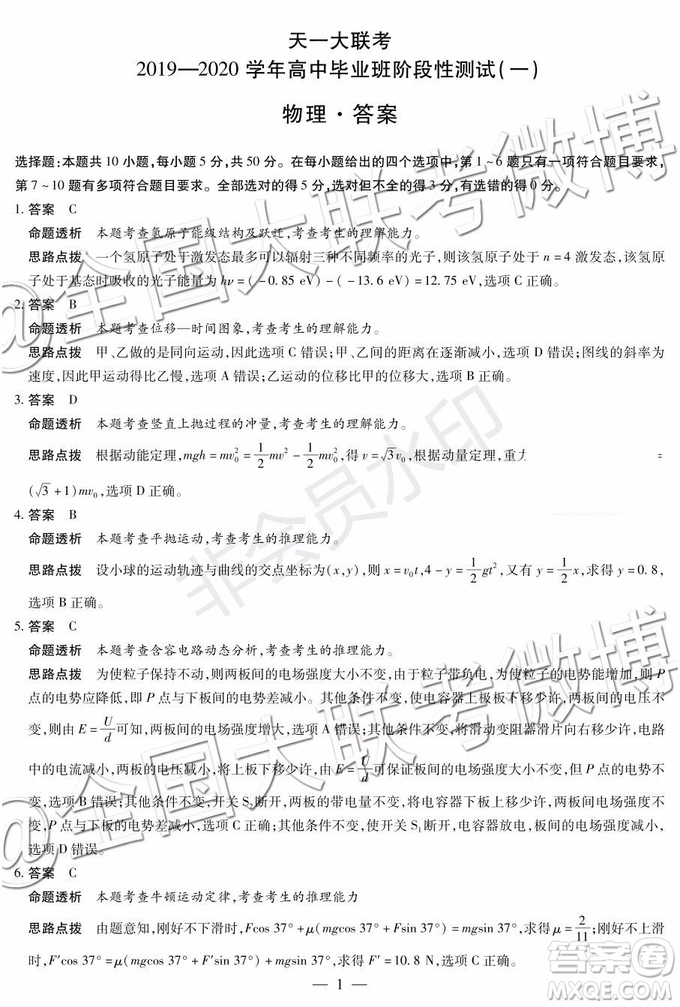 天一大联考
2019—2020 学年高中毕业班阶段性测试(一)
物理·答案
选择题:本题共 10 小题,每小题 5 分,共 50 分。在每小题给出的四个选项中,第 1~6 题只有一项符合题目要求,
第 7~10 题有多项符合题目要求。全部选对的得 5 分,选对但不全的得 3 分,有选错的得 0 分。
1. 答案 C
命题透析 本题考查氢原子能级结构及跃迁,考查考生的理解能力。
思路点拨 一个氢原子处于激发态最多可以辐射三种不同频率的光子,则该氢原子处于 n=4 激发态,该氢原
子处于基态时吸收的光子能量为 hν=(-0.85 eV)-(-13.6 eV)=12.75 eV,选项 C 正确。
2. 答案 B
命题透析 本题考查位移—时间图象,考查考生的理解能力。
思路点拨 甲、乙做的是同向运动,因此选项 C 错误;甲、乙间的距离在逐渐减小,选项 D 错误;图线的斜率为
速度,因此甲运动得比乙慢,选项 A 错误;乙运动的位移比甲的位移大,选项 B 正确。
3. 答案 D
命题透析 本题考查竖直上抛过程的冲量,考查考生的理解能力。
思路点拨 根据动能定理,mgh=mv₀²=1/2mv²-1/2mv₀²,得 v=√3v₀。根据动量定理,重力 =
(√3+1)mv₀,选项 D 正确。
4. 答案 B
命题透析 本题考查平抛运动,考查考生的推理能力。
思路点拨 设小球的运动轨迹与曲线的交点坐标为(x,y),则 x=v₀t,4-y=1/2gt²,又有 y=1/2x,求得 y=0.8,
选项 B 正确。
5. 答案 C
命题透析 本题考查含容电路动态分析,考查考生的推理能力。
思路点拨 为使粒子保持不动,则两板间的电场强度大小不变,由于粒子带负电,为使粒子的电势能增加,则 P
点的电势应降低,即 P 点与下板间的电势差减小。其他条件不变,使电容器上极板下移少许,两板间的电压不
变,则由 E=U/d可知,两板间的电场强度增大,选项 A 错误;其他条件不变,将滑动变阻器滑片向右移少许,电路
中的电流减小,两板的电压减小,将下极板上移少许,由 E=U/d可保证板间的电场强度大小不变,但 P 点电势不
变,选项 B 错误;其他条件不变,开关 S₂断开,两板的带电量不变,将电容器的下板上移少许,两板间的电场强度
不变,P 点与下板的电势差减小,选项 C 正确;其他条件不变,使开关 S₁断开,电容器放电,板间的电场强度减小,
选项 D 错误。
6. 答案 C
命题透析 本题考查牛顿运动定律,考查考生的推理能力
思路点拨 由题意知,刚好不下滑时,Fcos 37°+μ(mgcos 37°+Fsin 37°)=mgsin 37°,求得 μ=2/11;刚好不上滑
时,F′cos 37°=μ(mgcos 37°+F′sin 37°)+mgsin 37°,求得 F′=10.8 N,选项 C 正确。
— 1 —
@全国大联考微博
@全国大联考微博
非会员水印
答案圈
MXQE.COM